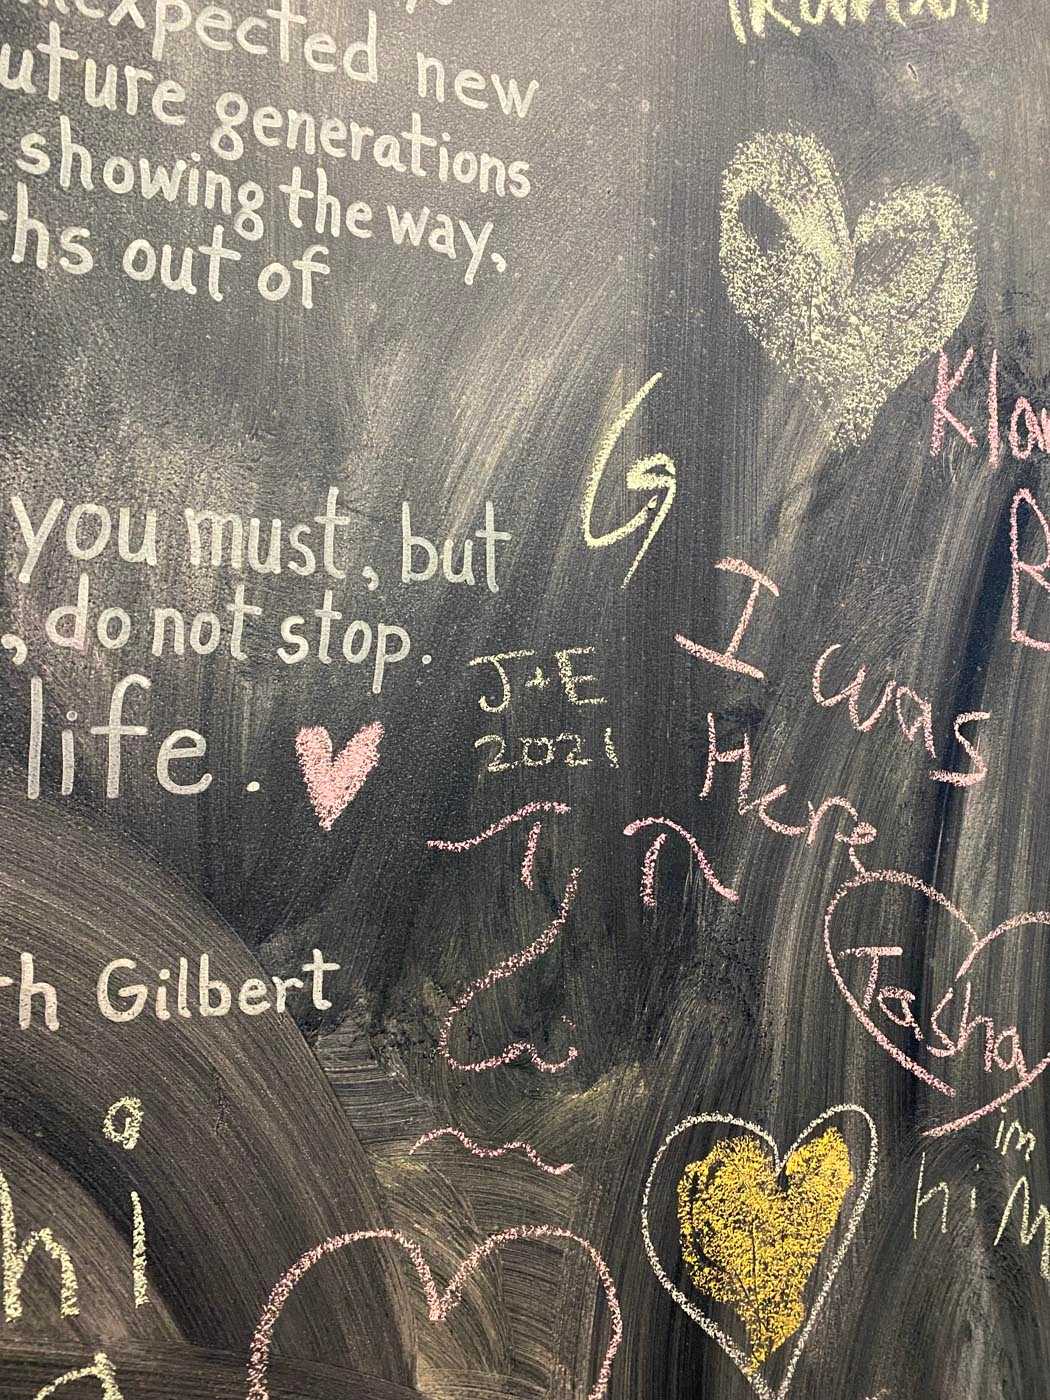 expected new
future generations
showing the way,
out of
you must, but
, do not stop.
life.
Gilbert
J+E
2021
I was
Here
Tasha
im
hi
hi